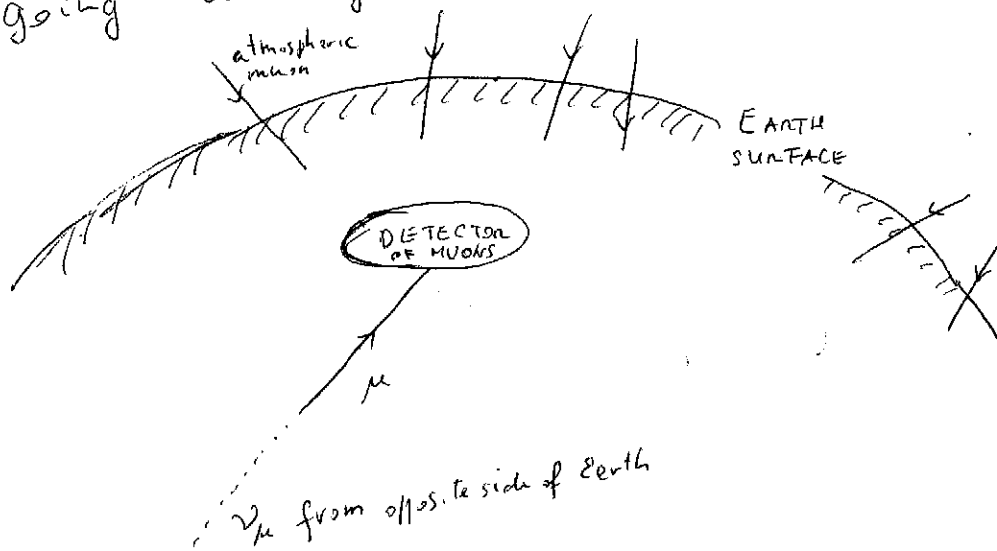 going
atmospheric
muon
EARTH
SURFACE
DETECTOR
OF MUONS
μ
νμ from opposite side of Earth